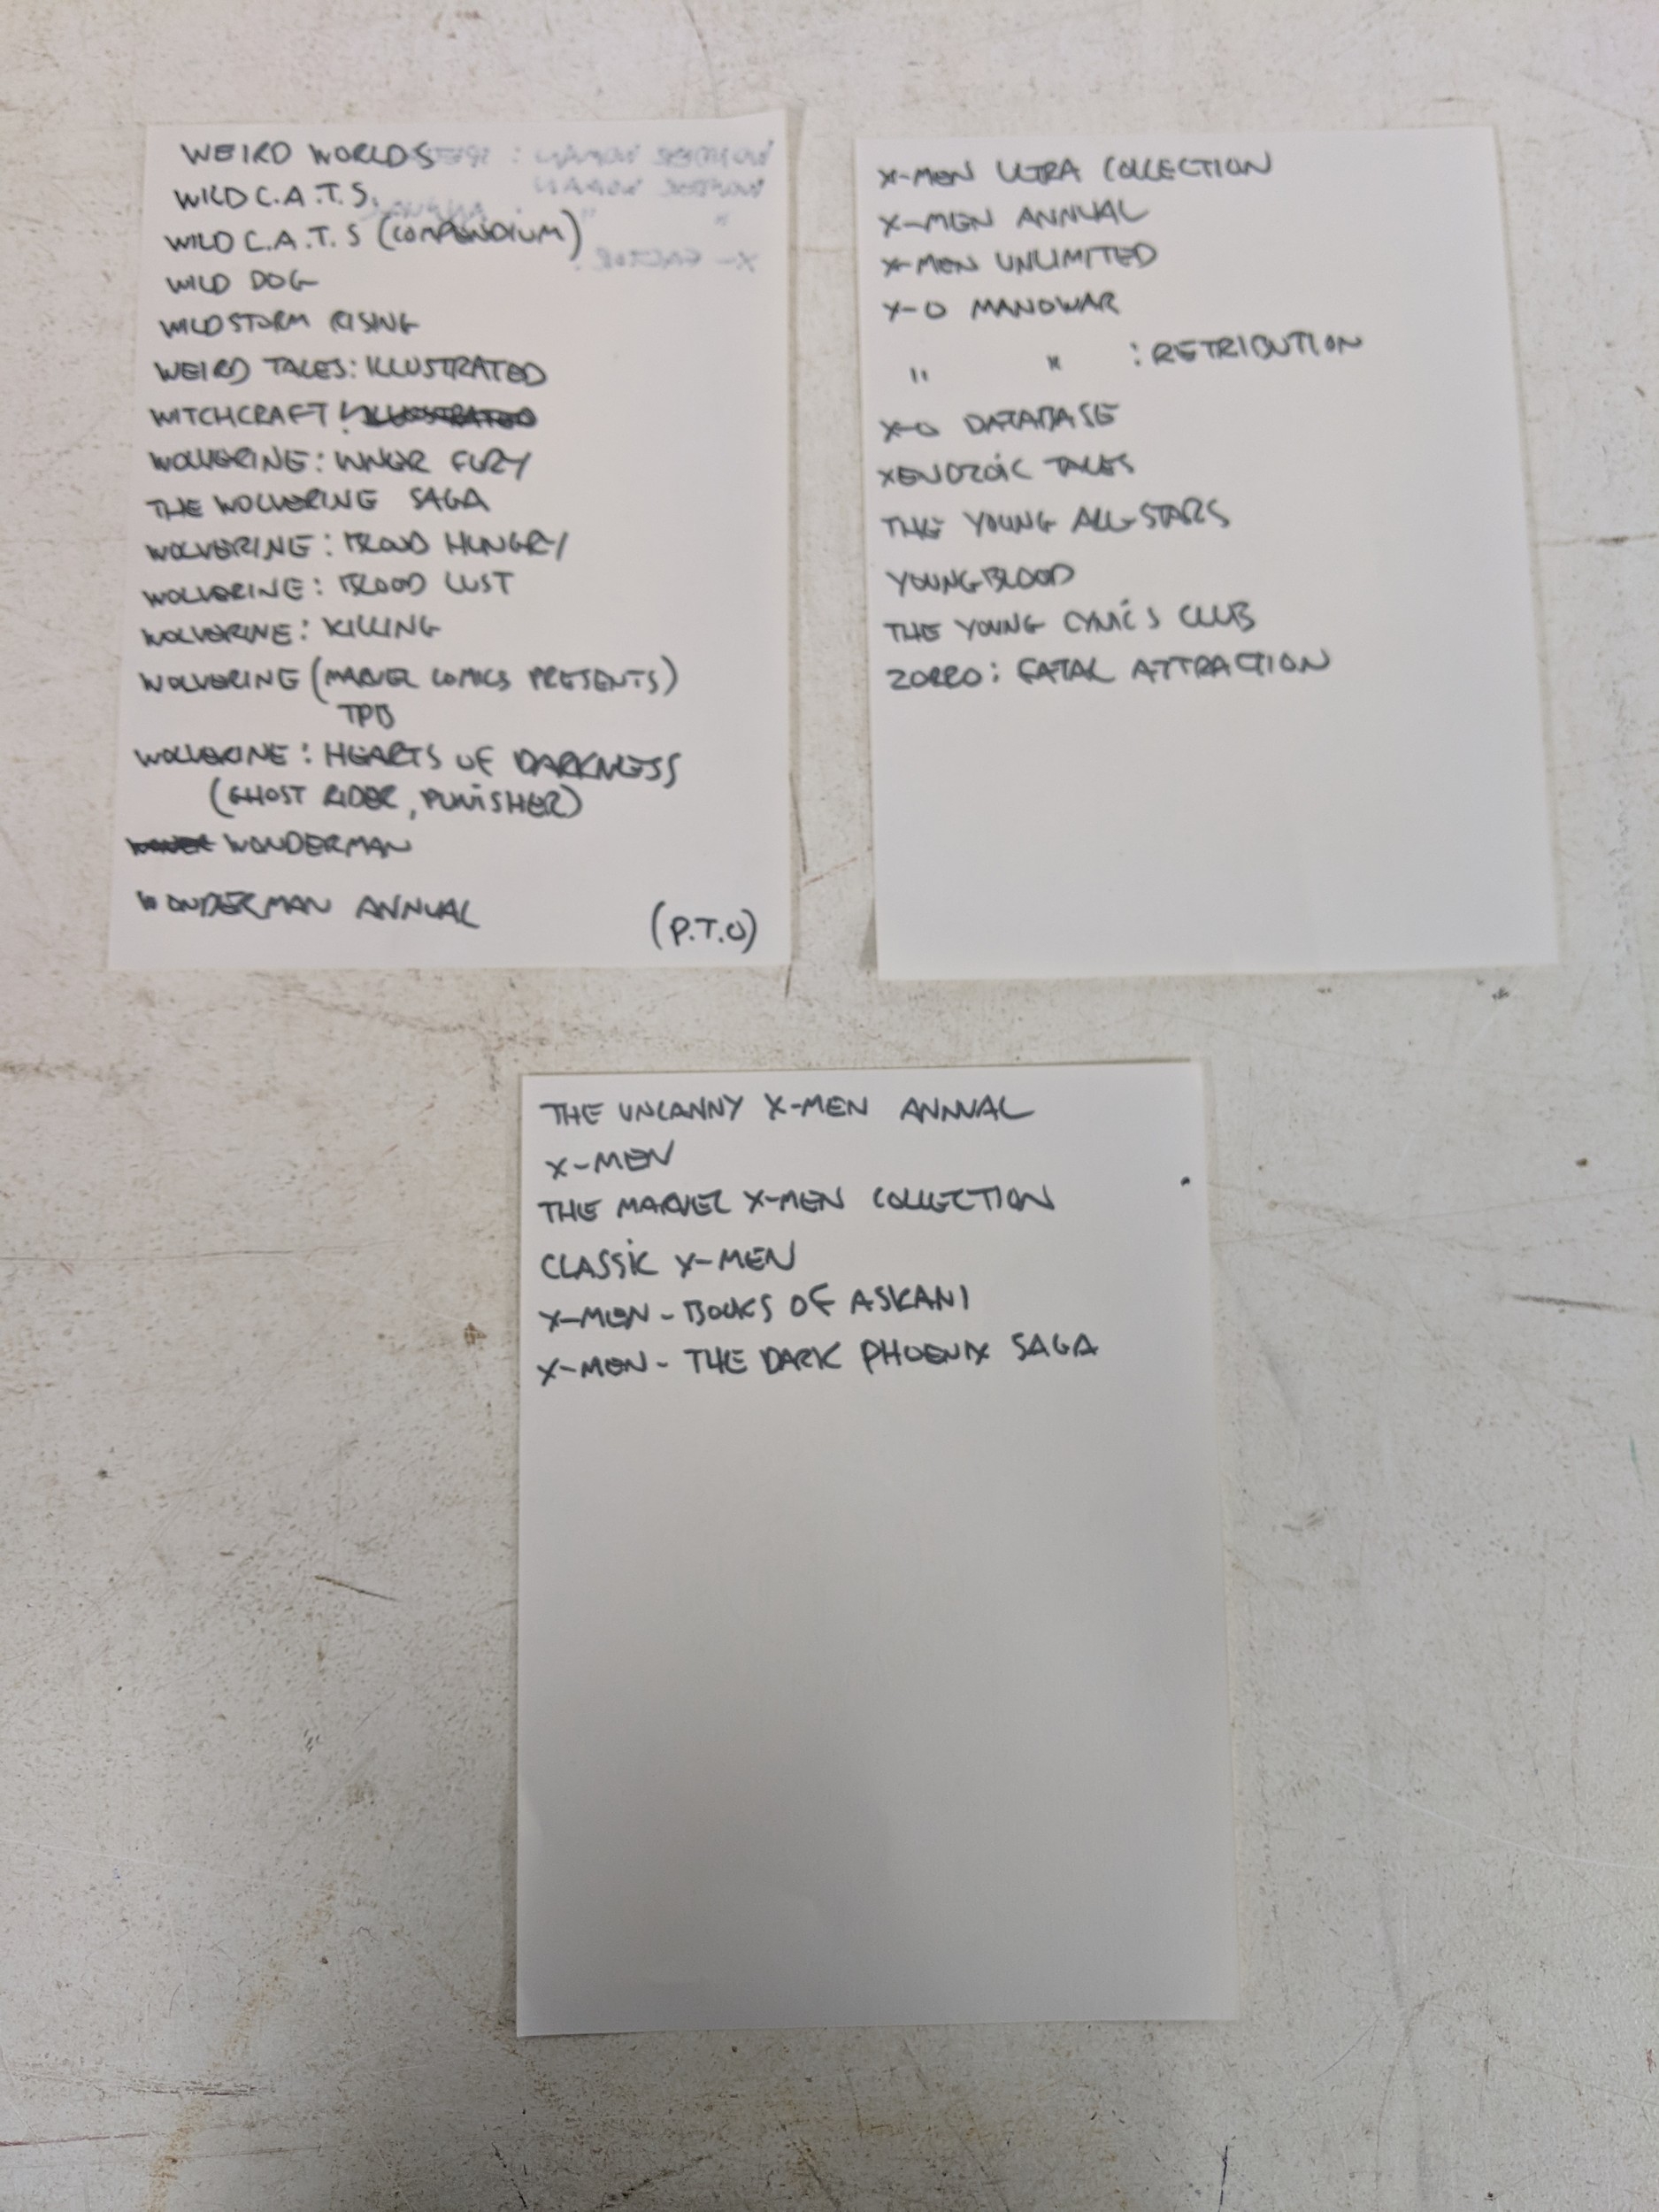 WEIRD WORLDS
WILD C.A.T.S.
WILD C.A.T.S (COMPENDIUM)
WILD DOG
WILDSTORM RISING
WEIRD TALES: ILLUSTRATED
WITCHCRAFT
WOLVERINE: INNER FURY
THE WOLVERINE SAGA
WOLVERINE: BLOOD HUNGRY
WOLVERINE: BLOOD LUST
WOLVERINE: KILLING
WOLVERINE (MARVEL COMICS PRESENTS)
TPB
WOLVERINE: HEARTS OF DARKNESS
(GHOST RIDER, PUNISHER)
WONDERMAN
WONDERMAN ANNUAL
(P.T.O)
X-MEN ULTRA COLLECTION
X-MEN ANNUAL
X-MEN UNLIMITED
X-O MANOWAR
" " : RETRIBUTION
X-O DATABASE
XENOZOIC TALES
THE YOUNG ALL-STARS
YOUNGBLOOD
THE YOUNG CYNIC'S CLUB
ZORRO: FATAL ATTRACTION
THE UNCANNY X-MEN ANNUAL
X-MEN
THE MARVEL X-MEN COLLECTION
CLASSIC X-MEN
X-MEN - BOOKS OF ASKANI
X-MEN - THE DARK PHOENIX SAGA